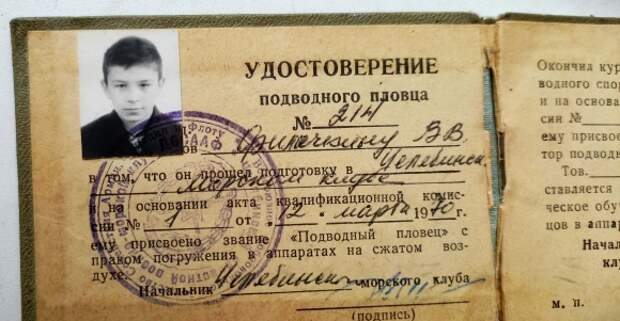 УДОСТОВЕРЕНИЕ
подводного пловца
№ 214
В.В.
в том, что он прошел подготовку в Челябинск.
Морском клубе
и на основании акта квалификационной комис-
сии № 1 от. 12. марта 1970 г.
ему присвоено звание «Подводный пловец с
правом погружения в аппаратах на сжатом воз-
духе.
Начальник Челябинск. морского клуба
(подпись)
Окончил кур
водного спор
и на основа
сии №
ему присвое
тор подводн
Тов.
ставляется
ческое обу
цов в аппар
Нача
клу
м. п.